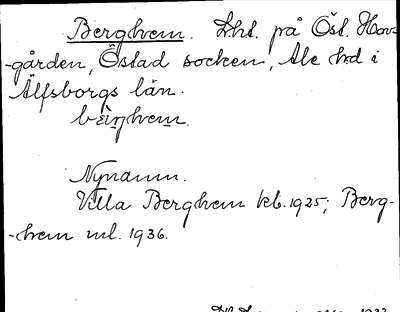 Berghem. Lht. på Öst. Hov-
-gården, Östad socken, Ale hd i
Älfsborgs län.
bæ̀r̥hem.
Nynamn.
Villa Berghem kb. 1925; Berg-
-hem ml. 1936.